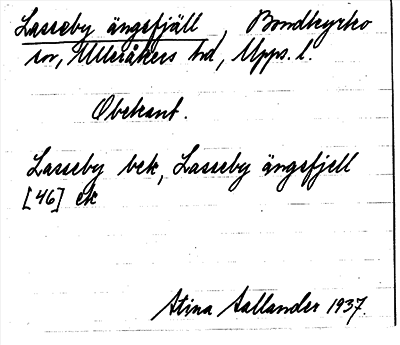 Lasseby ängsfjäll, Bondkyrko
sn, Ulleråkers hd, Upps. l.
Obekant.
Lasseby bek, Lasseby ängsfjell
[46] ek
Stina Sallander 1937.